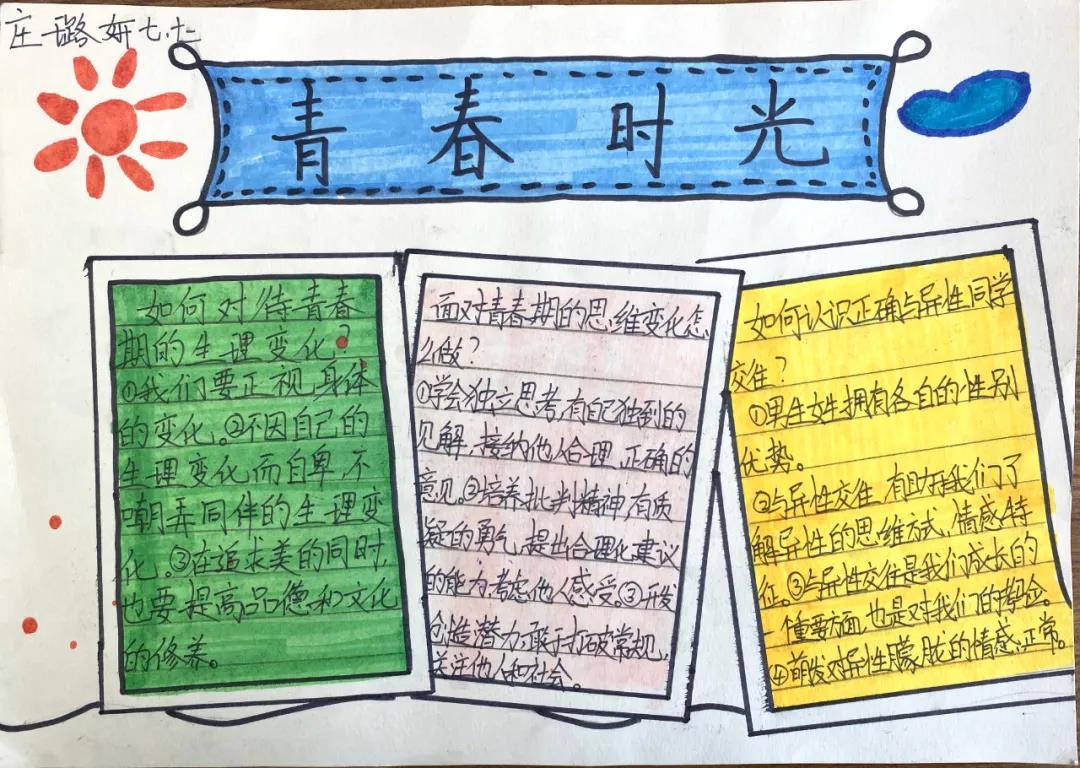 庄璐妍七.十一
青春时光
如何对待青春
期的生理变化?
①我们要正视身体
的变化。②不因自己的
生理变化而自卑不
嘲弄同伴的生理变
化。③在追求美的同时,
也要提高品德和文化
的修养。
面对青春期的思维变化怎
么做?
①学会独立思考,有自己独到的
见解,接纳他人合理、正确的
意见。②培养批判精神,有质
疑的勇气,提出合理化建议
的能力,考虑他人感受。③开发
创造潜力,敢于打破常规,
关注他人和社会。
如何认识正确与异性同学
交往?
①男生女生拥有各自的性别
优势。
②与异性交往,有助于我们了
解异性的思维方式、情感特
征。③与异性交往是我们成长的
一个重要方面,也是对我们的考验。
④萌发对异性朦胧的情感,正常。